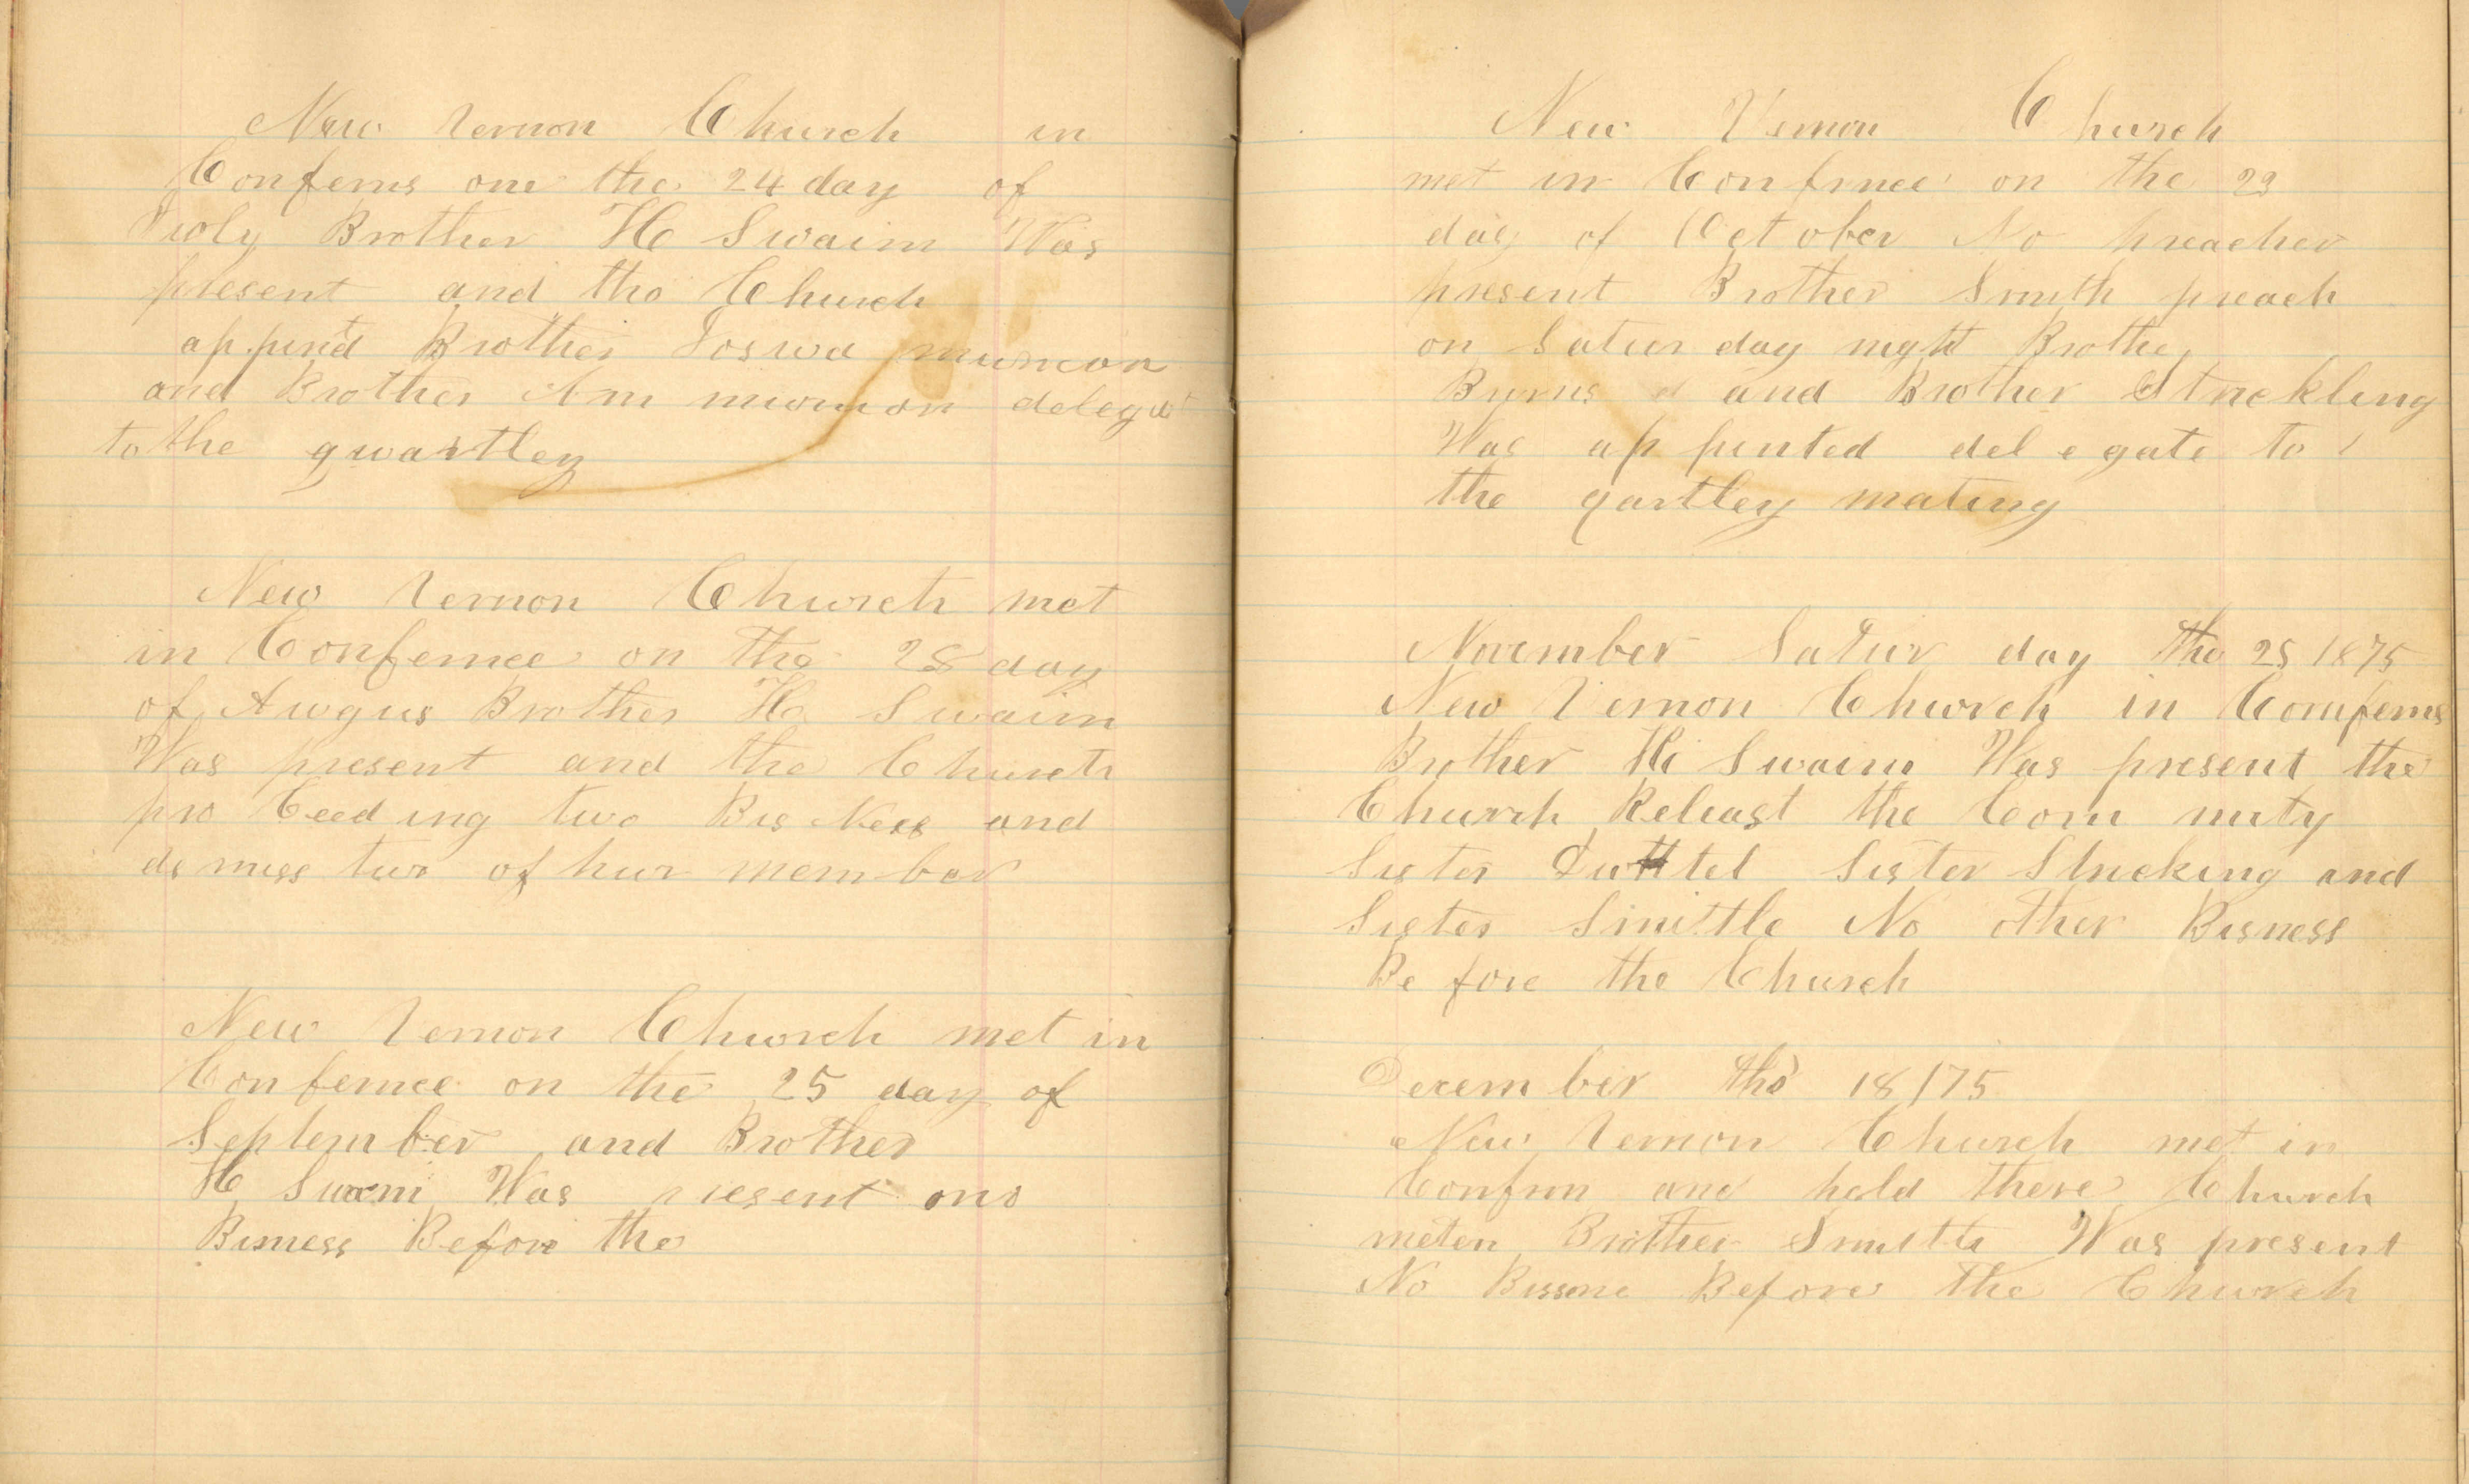 New Vernon Church in
Conferns one the 24 day of
Juoly Brother H Swaim Was
present and the Church
appind Brother Joswa muncon
and Brother Wm muncon delegat
to the qwartley
New Vernon Church met
in Confernce on the 28 day
of Awgus Brother H Swaim
Was present and the Church
pro Ceed ing two Bis Ness and
de miss two of hur mem ber
New Vernon Church met in
Confernce on the 25 day of
September and Brother
H Swami Was present ono
Bisness Before the
New Vernon Church
met in Confrnce on the 23
day of October No preacher
present Brother Smith preach
on Satur day night Brother
Byrns and Brother Strickling
Was ap pinted del e gate to
the qartley mating
November Satur day the 25 1875
New Vernon Church in Comferns
Brother H Swaim Was present the
Church Releast the Com nity
Sister Sister Stricking and
Sister Smittle No other Bisness
Be fore the Church
Decem ber the 18/75
New Vernon Church met in
Confrnn and held there Church
meten Brother Smith Was present
No Bissone Before the Church